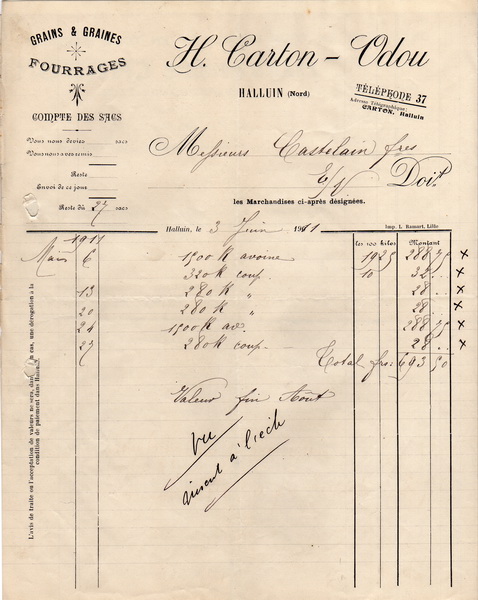 GRAINS & GRAINES
FOURRAGES
COMPTE DES SACS
Vous nous deviez sacs
Vous nous avez remis
Reste
Envoi de ce jour
Reste dû 27 sacs
H. Carton - Odou
HALLUIN (Nord)
TÉLÉPHONE 37
Adresse Télégraphique:
CARTON, Halluin
Messieurs Castelain fres
E/V. Doit
les Marchandises ci-après désignées.
Halluin, le 3 Juin 1911
Imp. L. Lille
les 100 kilos Montant
1911
Mars 6 1500 K avoine 1925 288 75 x
320 K coup. 10 32 .. x
13 280 K " 28 .. x
20 280 K " 28 .. x
24 1500 K av. 288 75 x
27 280 K coup. 28 .. x
Total frs: 693 50
Valeur fin Août
vu
L'avis de traite ou l'acceptation de valeurs ne sera, dans aucun cas, une dérogation à la
condition de paiement dans Halluin.